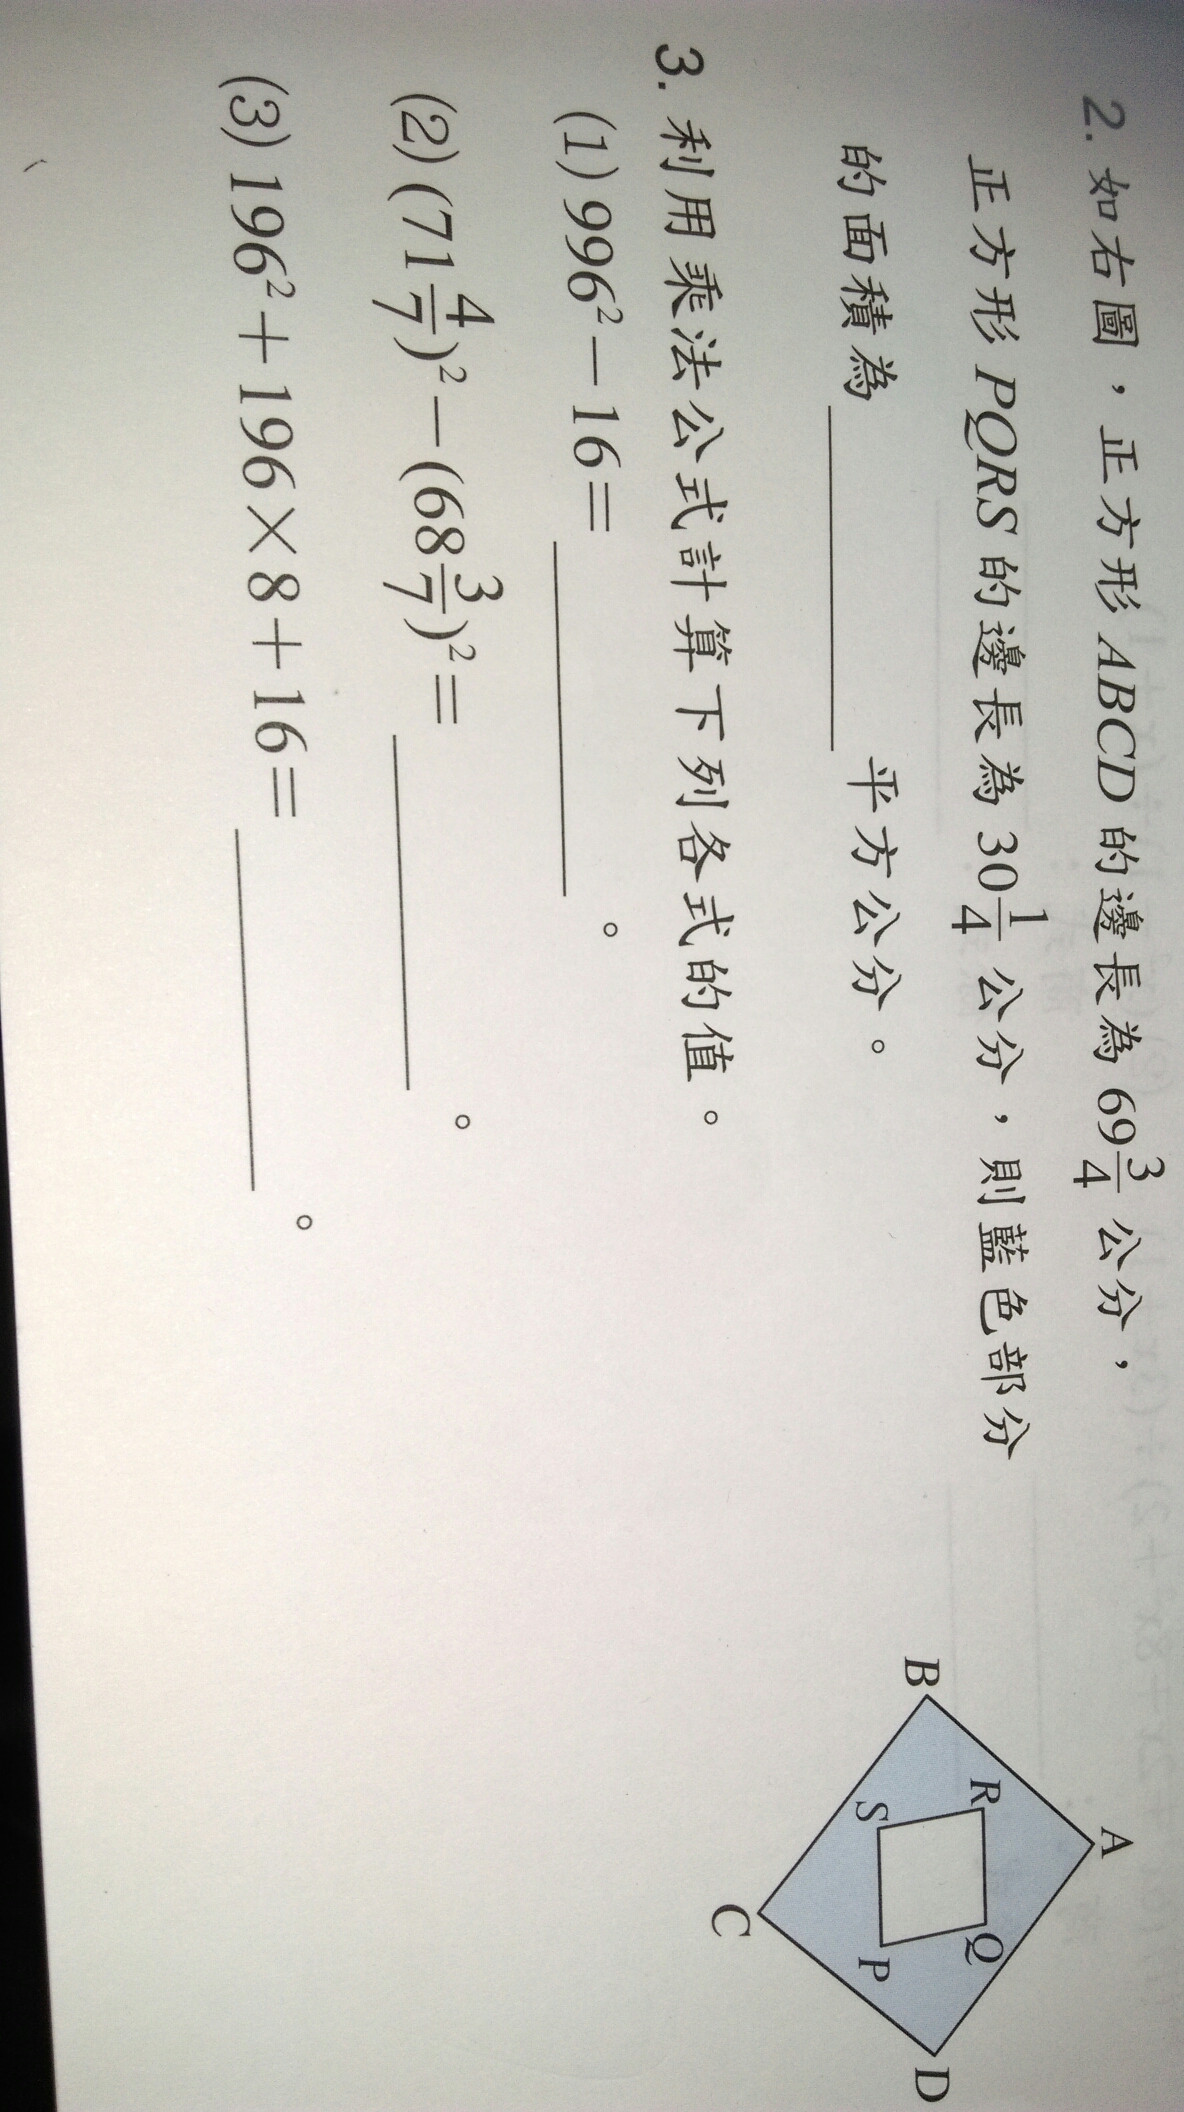 2. 如右圖，正方形 ABCD 的邊長為 69 3/4 公分，
正方形 PQRS 的邊長為 30 1/4 公分，則藍色部分
的面積為＿＿＿＿＿＿平方公分。
3. 利用乘法公式計算下列各式的值。
(1) 996²－16＝＿＿＿＿＿＿。
(2) (71 4/7)²－(68 3/7)²＝＿＿＿＿＿＿。
(3) 196²＋196×8＋16＝＿＿＿＿＿＿。
A
B
R
Q
S
P
D
C